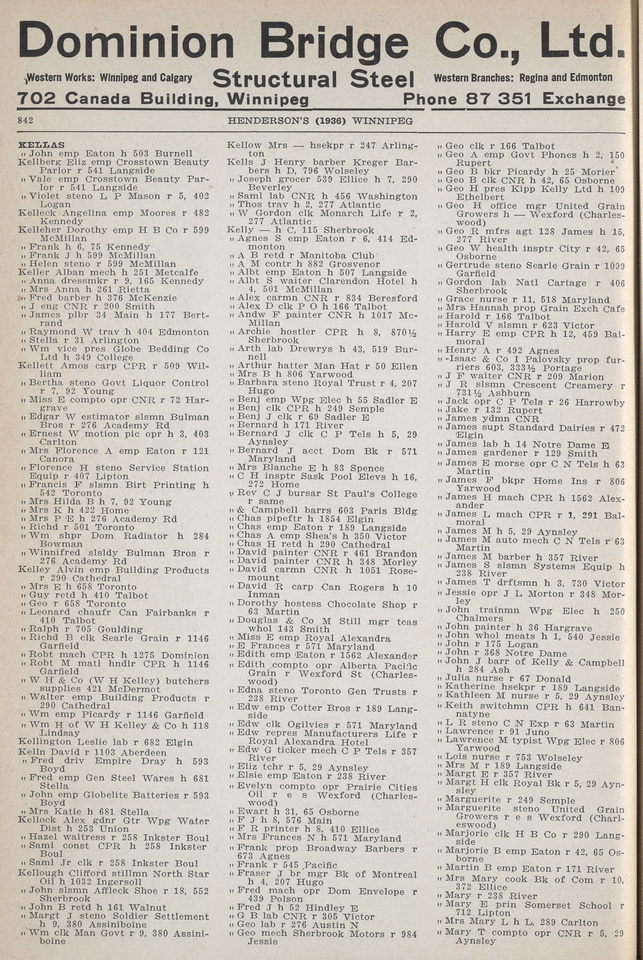 Dominion Bridge Co., Ltd.
Western Works: Winnipeg and Calgary Structural Steel Western Branches: Regina and Edmonton
702 Canada Building, Winnipeg Phone 87 351 Exchange
842 HENDERSON'S (1936) WINNIPEG
KELLAS
" John emp Eaton h 503 Burnell
Kellberg Eliz emp Crosstown Beauty
Parlor r 541 Langside
" Vale emp Crosstown Beauty Par-
lor r 541 Langside
" Violet steno L P Mason r 5, 402
Logan
Kelleck Angelina emp Moores r 482
Kennedy
Kelleher Dorothy emp H B Co r 599
McMillan
" Frank h 6, 75 Kennedy
" Frank J h 599 McMillan
" Helen steno r 599 McMillan
Keller Alban mech h 251 Metcalfe
" Anna dressmkr r 9, 165 Kennedy
" Mrs Anna h 261 Rietta
" Fred barber h 376 McKenzie
" J eng CNR r 200 Smith
" James plbr 34 Main h 177 Bert-
rand
" Raymond W trav h 404 Edmonton
" Stella r 31 Arlington
" Wm vice pres Globe Bedding Co
Ltd h 349 College
Kellett Amos carp CPR r 509 Wil-
liam
" Bertha steno Govt Liquor Control
r 7, 92 Young
" Miss E compto opr CNR r 72 Har-
grave
" Edgar W estimator slsmn Bulman
Bros r 276 Academy Rd
" Ernest W motion pic opr h 3, 403
Carlton
" Mrs Florence A emp Eaton r 121
Canora
" Florence H steno Service Station
Equip r 407 Lipton
" Francis F slsmn Birt Printing h
542 Toronto
" Mrs Hilda B h 7, 92 Young
" Mrs K h 422 Home
" Mrs P E h 276 Academy Rd
" Richd r 501 Toronto
" Wm shpr Dom Radiator h 284
Bowman
" Winnifred slsldy Bulman Bros r
276 Academy Rd
Kelley Alvin emp Building Products
r 290 Cathedral
" Mrs E h 658 Toronto
" Guy retd h 410 Talbot
" Geo r 658 Toronto
" Leonard chaufr Can Fairbanks r
410 Talbot
" Ralph r 705 Goulding
" Richd B clk Searle Grain r 1146
Garfield
" Robt mach CPR h 1275 Dominion
" Robt M matl hndlr CPR h 1146
Garfield
" W H & Co (W H Kelley) butchers
supplies 421 McDermot
" Walter emp Building Products r
290 Cathedral
" Wm emp Picardy r 1146 Garfield
" Wm H of W H Kelley & Co h 118
Lindsay
Kellington Leslie lab r 682 Elgin
Kelln David r 1103 Aberdeen
" Fred driv Empire Dray h 593
Boyd
" Fred emp Gen Steel Wares h 681
Stella
" John emp Globelite Batteries r 593
Boyd
" Mrs Katie h 681 Stella
Kellock Alex gdnr Gtr Wpg Water
Dist h 253 Union
" Hazel waitress r 258 Inkster Boul
" Saml const CPR h 258 Inkster
Boul
" Saml Jr clk r 258 Inkster Boul
Kellough Clifford stillmn North Star
Oil h 1032 Ingersoll
" John slsmn Affleck Shoe r 18, 552
Sherbrook
" John B retd h 161 Walnut
" Margt J steno Soldier Settlement
h 9, 380 Assiniboine
" Wm clk Man Govt r 9, 380 Assini-
boine
Kellow Mrs — hsekpr r 247 Arling-
ton
Kells J Henry barber Kreger Bar-
bers h D, 796 Wolseley
" Joseph grocer 539 Ellice h 7, 290
Beverley
" Saml lab CNR r 456 Washington
" Thos trav h 2, 277 Atlantic
" W Gordon clk Monarch Life r 2,
277 Atlantic
Kelly — h C, 115 Sherbrook
" Agnes S emp Eaton r 6, 414 Ed-
monton
" A B retd r Manitoba Club
" A M contr h 882 Grosvenor
" Albt emp Eaton h 507 Langside
" Albt S waiter Clarendon Hotel h
4, 501 McMillan
" Alex carmn CNR r 834 Beresford
" Alex D clk P O h 166 Talbot
" Andw F painter CNR h 1017 Mc-
Millan
" Archie hostler CPR h 8, 870½
Sherbrook
" Arth lab Drewrys h 43, 519 Bur-
nell
" Arthur hatter Man Hat r 50 Ellen
" Mrs B h 806 Yarwood
" Barbara steno Royal Trust r 4, 207
Hugo
" Benj emp Wpg Elec h 55 Sadler E
" Benj clk CPR h 249 Semple
" Benj J clk r 69 Sadler E
" Bernard h 171 River
" Bernard J clk C P Tels h 5, 29
Aynsley
" Bernard J acct Dom Bk r 571
Maryland
" Mrs Blanche E h 83 Spence
" C H insptr Sask Pool Elevs h 16,
272 Home
" Rev C J bursar St Paul's College
r same
" & Campbell barrs 603 Paris Bldg
" Chas pipeftr h 1854 Elgin
" Chas emp Eaton r 189 Langside
" Chas A emp Shea's h 350 Victor
" Chas H retd h 290 Cathedral
" David painter CNR r 461 Brandon
" David painter CNR h 348 Morley
" David carmn CNR h 1051 Rose-
mount
" David R carp Can Rogers h 10
Inman
" Dorothy hostess Chocolate Shop r
63 Martin
" Douglas & Co M Still mgr teas
whol 143 Smith
" Miss E emp Royal Alexandra
" E Frances r 571 Maryland
" Edith emp Eaton r 1562 Alexander
" Edith compto opr Alberta Pacific
Grain r Wexford St (Charles-
wood)
" Edna steno Toronto Gen Trusts r
238 River
" Edw emp Cotter Bros r 189 Lang-
side
" Edw clk Ogilvies r 571 Maryland
" Edw repres Manufacturers Life r
Royal Alexandra Hotel
" Edw G ticker mech C P Tels r 357
River
" Eliz tchr r 5, 29 Aynsley
" Elsie emp Eaton r 238 River
" Evelyn compto opr Prairie Cities
Oil r e s Wexford (Charles-
wood)
" Ewart h 31, 65 Osborne
" F J h 8, 576 Main
" F R printer h 8, 410 Ellice
" Mrs Frances N h 571 Maryland
" Frank prop Broadway Barbers r
673 Agnes
" Frank r 545 Pacific
" Fraser J br mgr Bk of Montreal
h 4, 207 Hugo
" Fred mach opr Dom Envelope r
439 Polson
" Fred J h 52 Hindley E
" G B lab CNR r 305 Victor
" Geo lab r 276 Austin N
" Geo mech Sherbrook Motors r 984
Jessie
" Geo clk r 166 Talbot
" Geo A emp Govt Phones h 2, 150
Rupert
" Geo B bkr Picardy h 25 Morier
" Geo B clk CNR h 42, 65 Osborne
" Geo H pres Kipp Kelly Ltd h 109
Ethelbert
" Geo H office mgr United Grain
Growers h — Wexford (Charles-
wood)
" Geo R mfrs agt 128 James h 15,
277 River
" Geo W health insptr City r 42, 65
Osborne
" Gertrude steno Searle Grain r 1039
Garfield
" Gordon lab Natl Cartage r 406
Sherbrook
" Grace nurse r 11, 518 Maryland
" Mrs Hannah prop Grain Exch Cafe
" Harold r 166 Talbot
" Harold V slsmn r 623 Victor
" Harry E emp CPR h 12, 459 Bal-
moral
" Henry A r 492 Agnes
" -Isaac & Co I Palovsky prop fur-
riers 603, 333½ Portage
" J F waiter CNR r 209 Marion
" J R slsmn Crescent Creamery r
731½ Ashburn
" Jack opr C P Tels r 26 Harrowby
" Jake r 132 Rupert
" James ydmn CNR
" James supt Standard Dairies r 472
Elgin
" James lab h 14 Notre Dame E
" James gardener r 129 Smith
" James E morse opr C N Tels h 63
Martin
" James F bkpr Home Ins r 806
Yarwood
" James H mach CPR h 1562 Alex-
ander
" James L mach CPR r 1, 291 Bal-
moral
" James M h 5, 29 Aynsley
" James M auto mech C N Tels r 63
Martin
" James M barber h 357 River
" James S slsmn Systems Equip h
238 River
" James T drftsmn h 3, 730 Victor
" Jessie opr J L Morton r 348 Mor-
ley
" John trainmn Wpg Elec h 250
Chalmers
" John painter h 36 Hargrave
" John whol meats h 1, 540 Jessie
" John r 175 Logan
" John r 368 Notre Dame
" John J barr of Kelly & Campbell
h 284 Ash
" Julia nurse r 67 Donald
" Katherine hsekpr r 189 Langside
" Kathleen M nurse r 5, 29 Aynsley
" Keith switchmn CPR h 641 Ban-
natyne
" L R steno C N Exp r 63 Martin
" Lawrence r 91 Juno
" Lawrence M typist Wpg Elec r 806
Yarwood
" Lois nurse r 753 Wolseley
" Mrs M r 189 Langside
" Margt E r 357 River
" Margt H clk Royal Bk r 5, 29 Ayn-
sley
" Marguerite r 249 Semple
" Marguerite steno United Grain
Growers r e s Wexford (Charl-
eswood)
" Marjorie clk H B Co r 290 Lang-
side
" Marjorie B emp Eaton r 42, 65 Os-
borne
" Martin B emp Eaton r 171 River
" Mrs Mary cook Bk of Com r 10,
372 Ellice
" Mary r 238 River
" Mary E prin Somerset School r
712 Lipton
" Mrs Mary L h L, 289 Carlton
" Mary T compto opr CNR r 5, 29
Aynsley